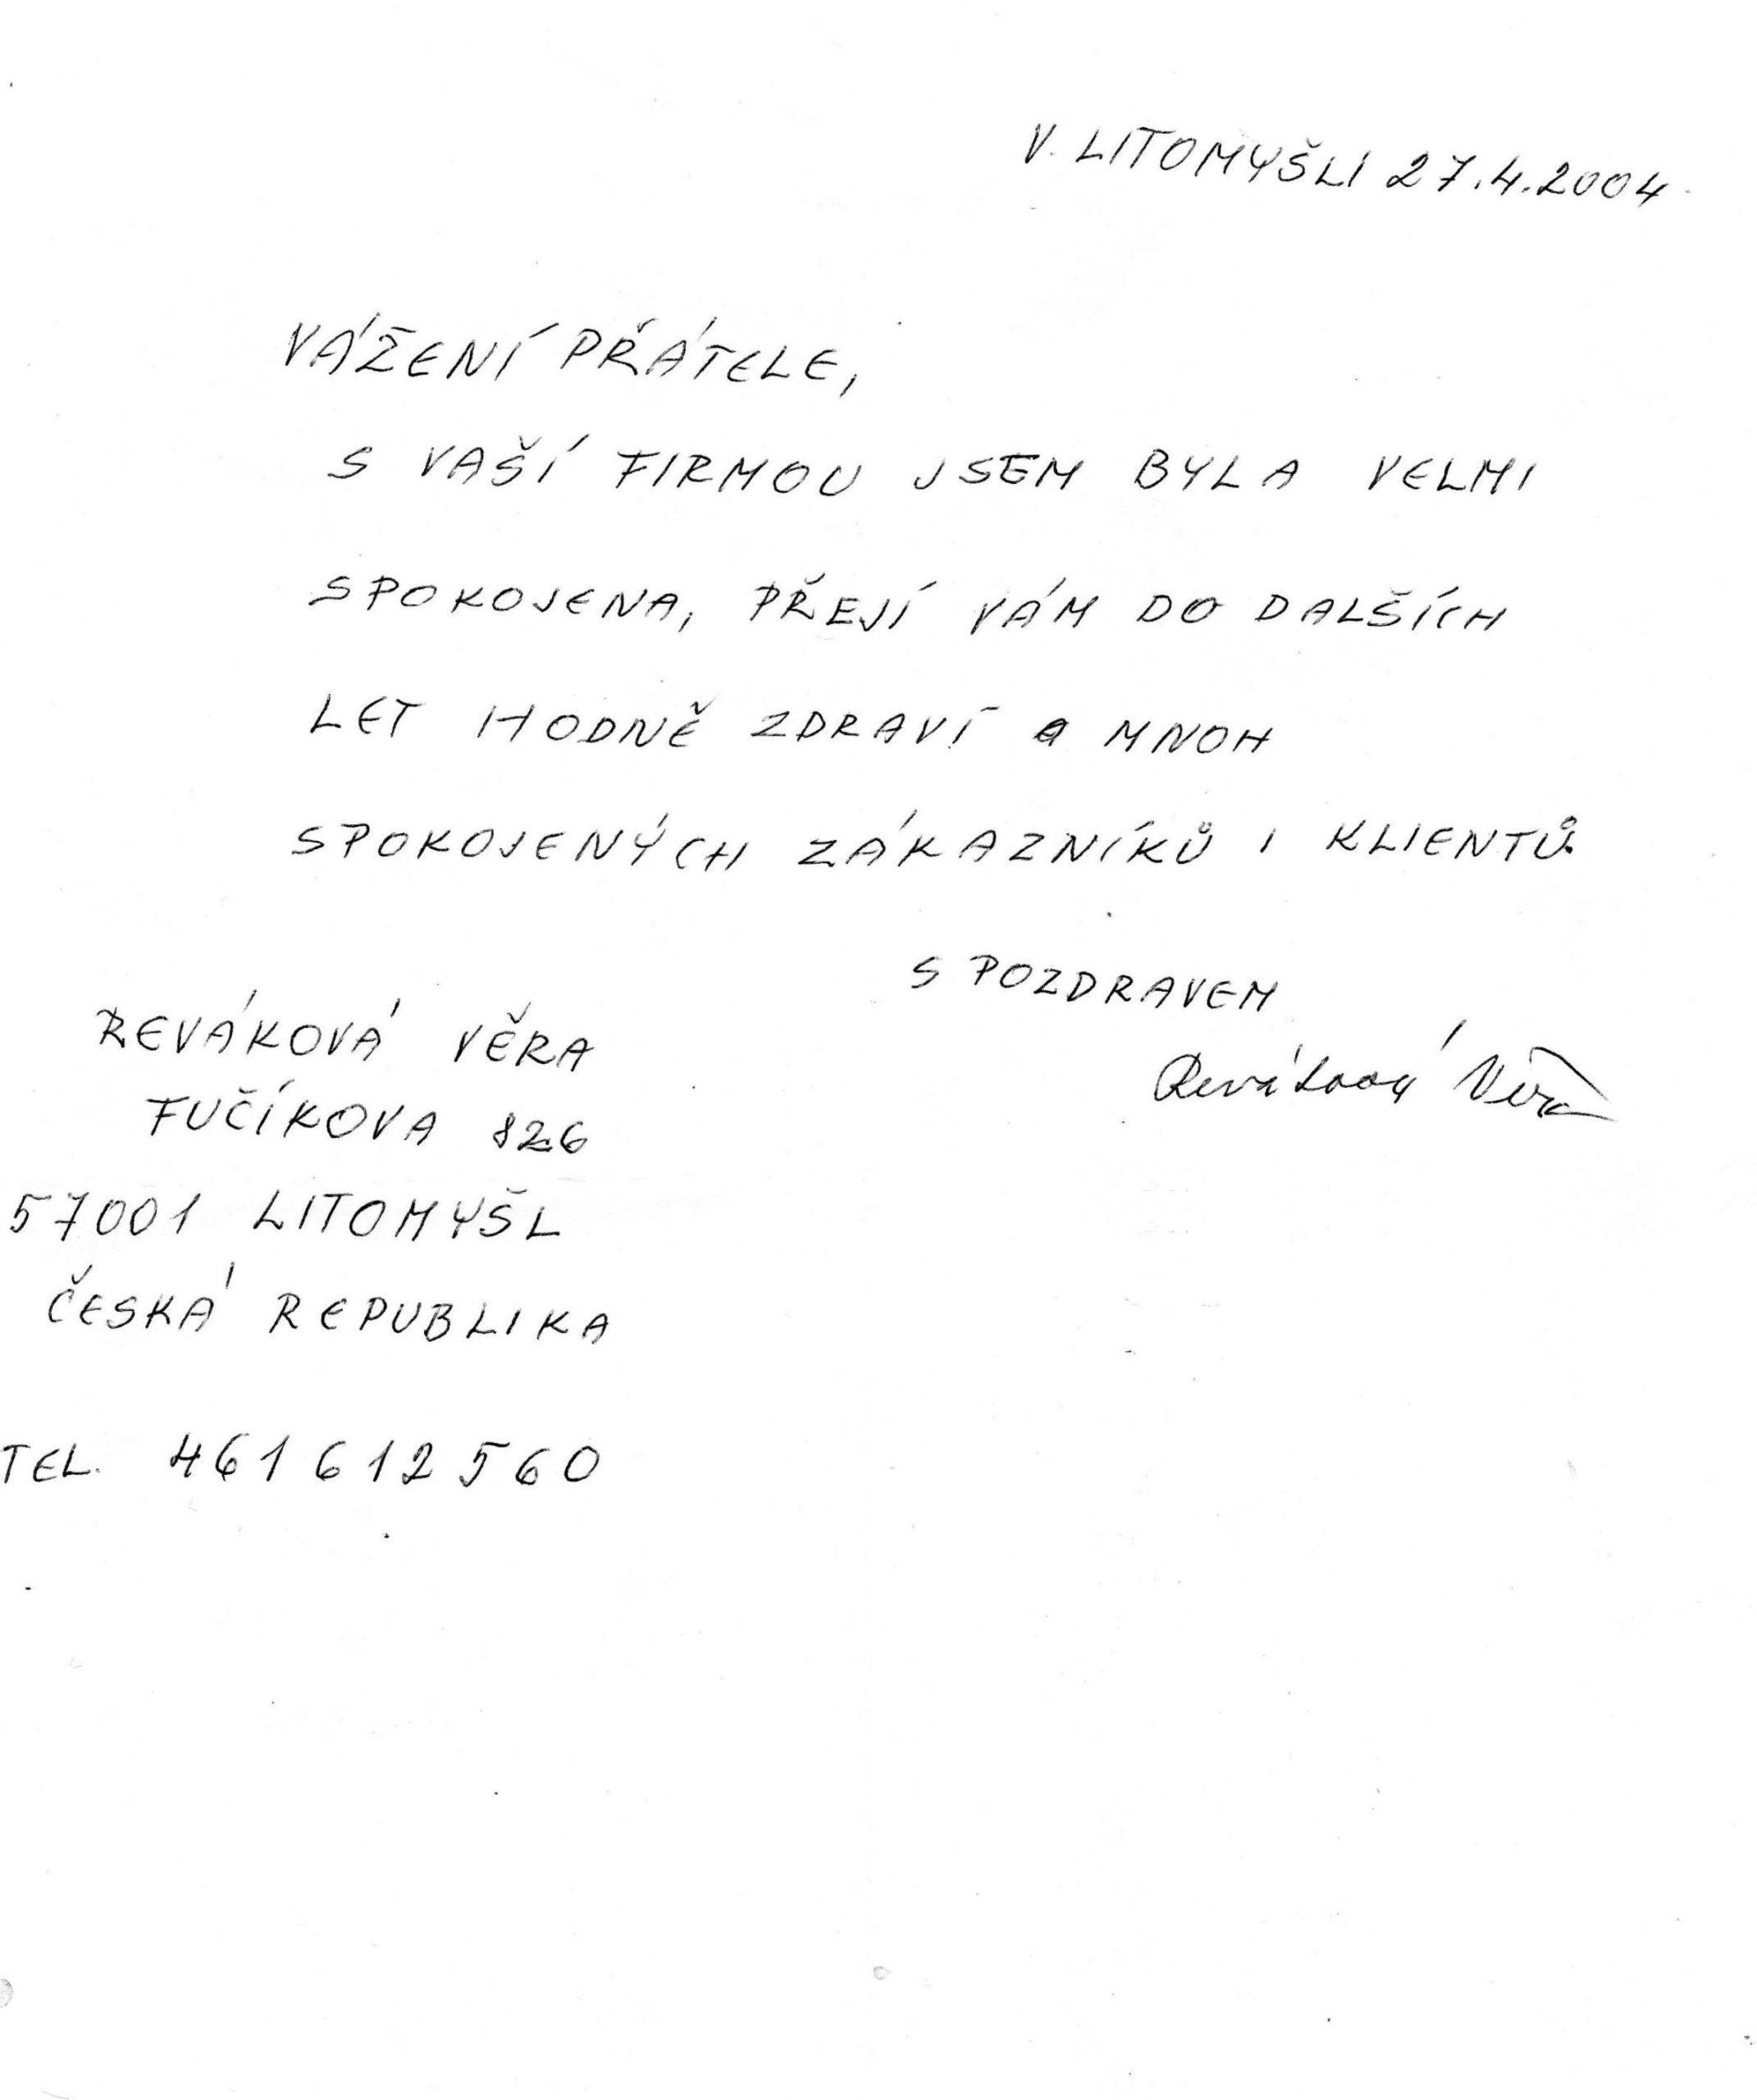 V. LITOMYŠLI 27.4.2004
VÁŽENÍ PŘÁTELE,
S VAŠÍ FIRMOU JSEM BYLA VELMI
SPOKOJENA, PŘEJÍ VÁM DO DALŠÍCH
LET HODNĚ ZDRAVÍ a MNOH
SPOKOJENÝCH ZÁKAZNÍKŮ I KLIENTŮ.
S POZDRAVEM
Reváková Věra
REVÁKOVÁ VĚRA
FUČÍKOVA 826
57001 LITOMYŠL
ČESKÁ REPUBLIKA
TEL. 461612560